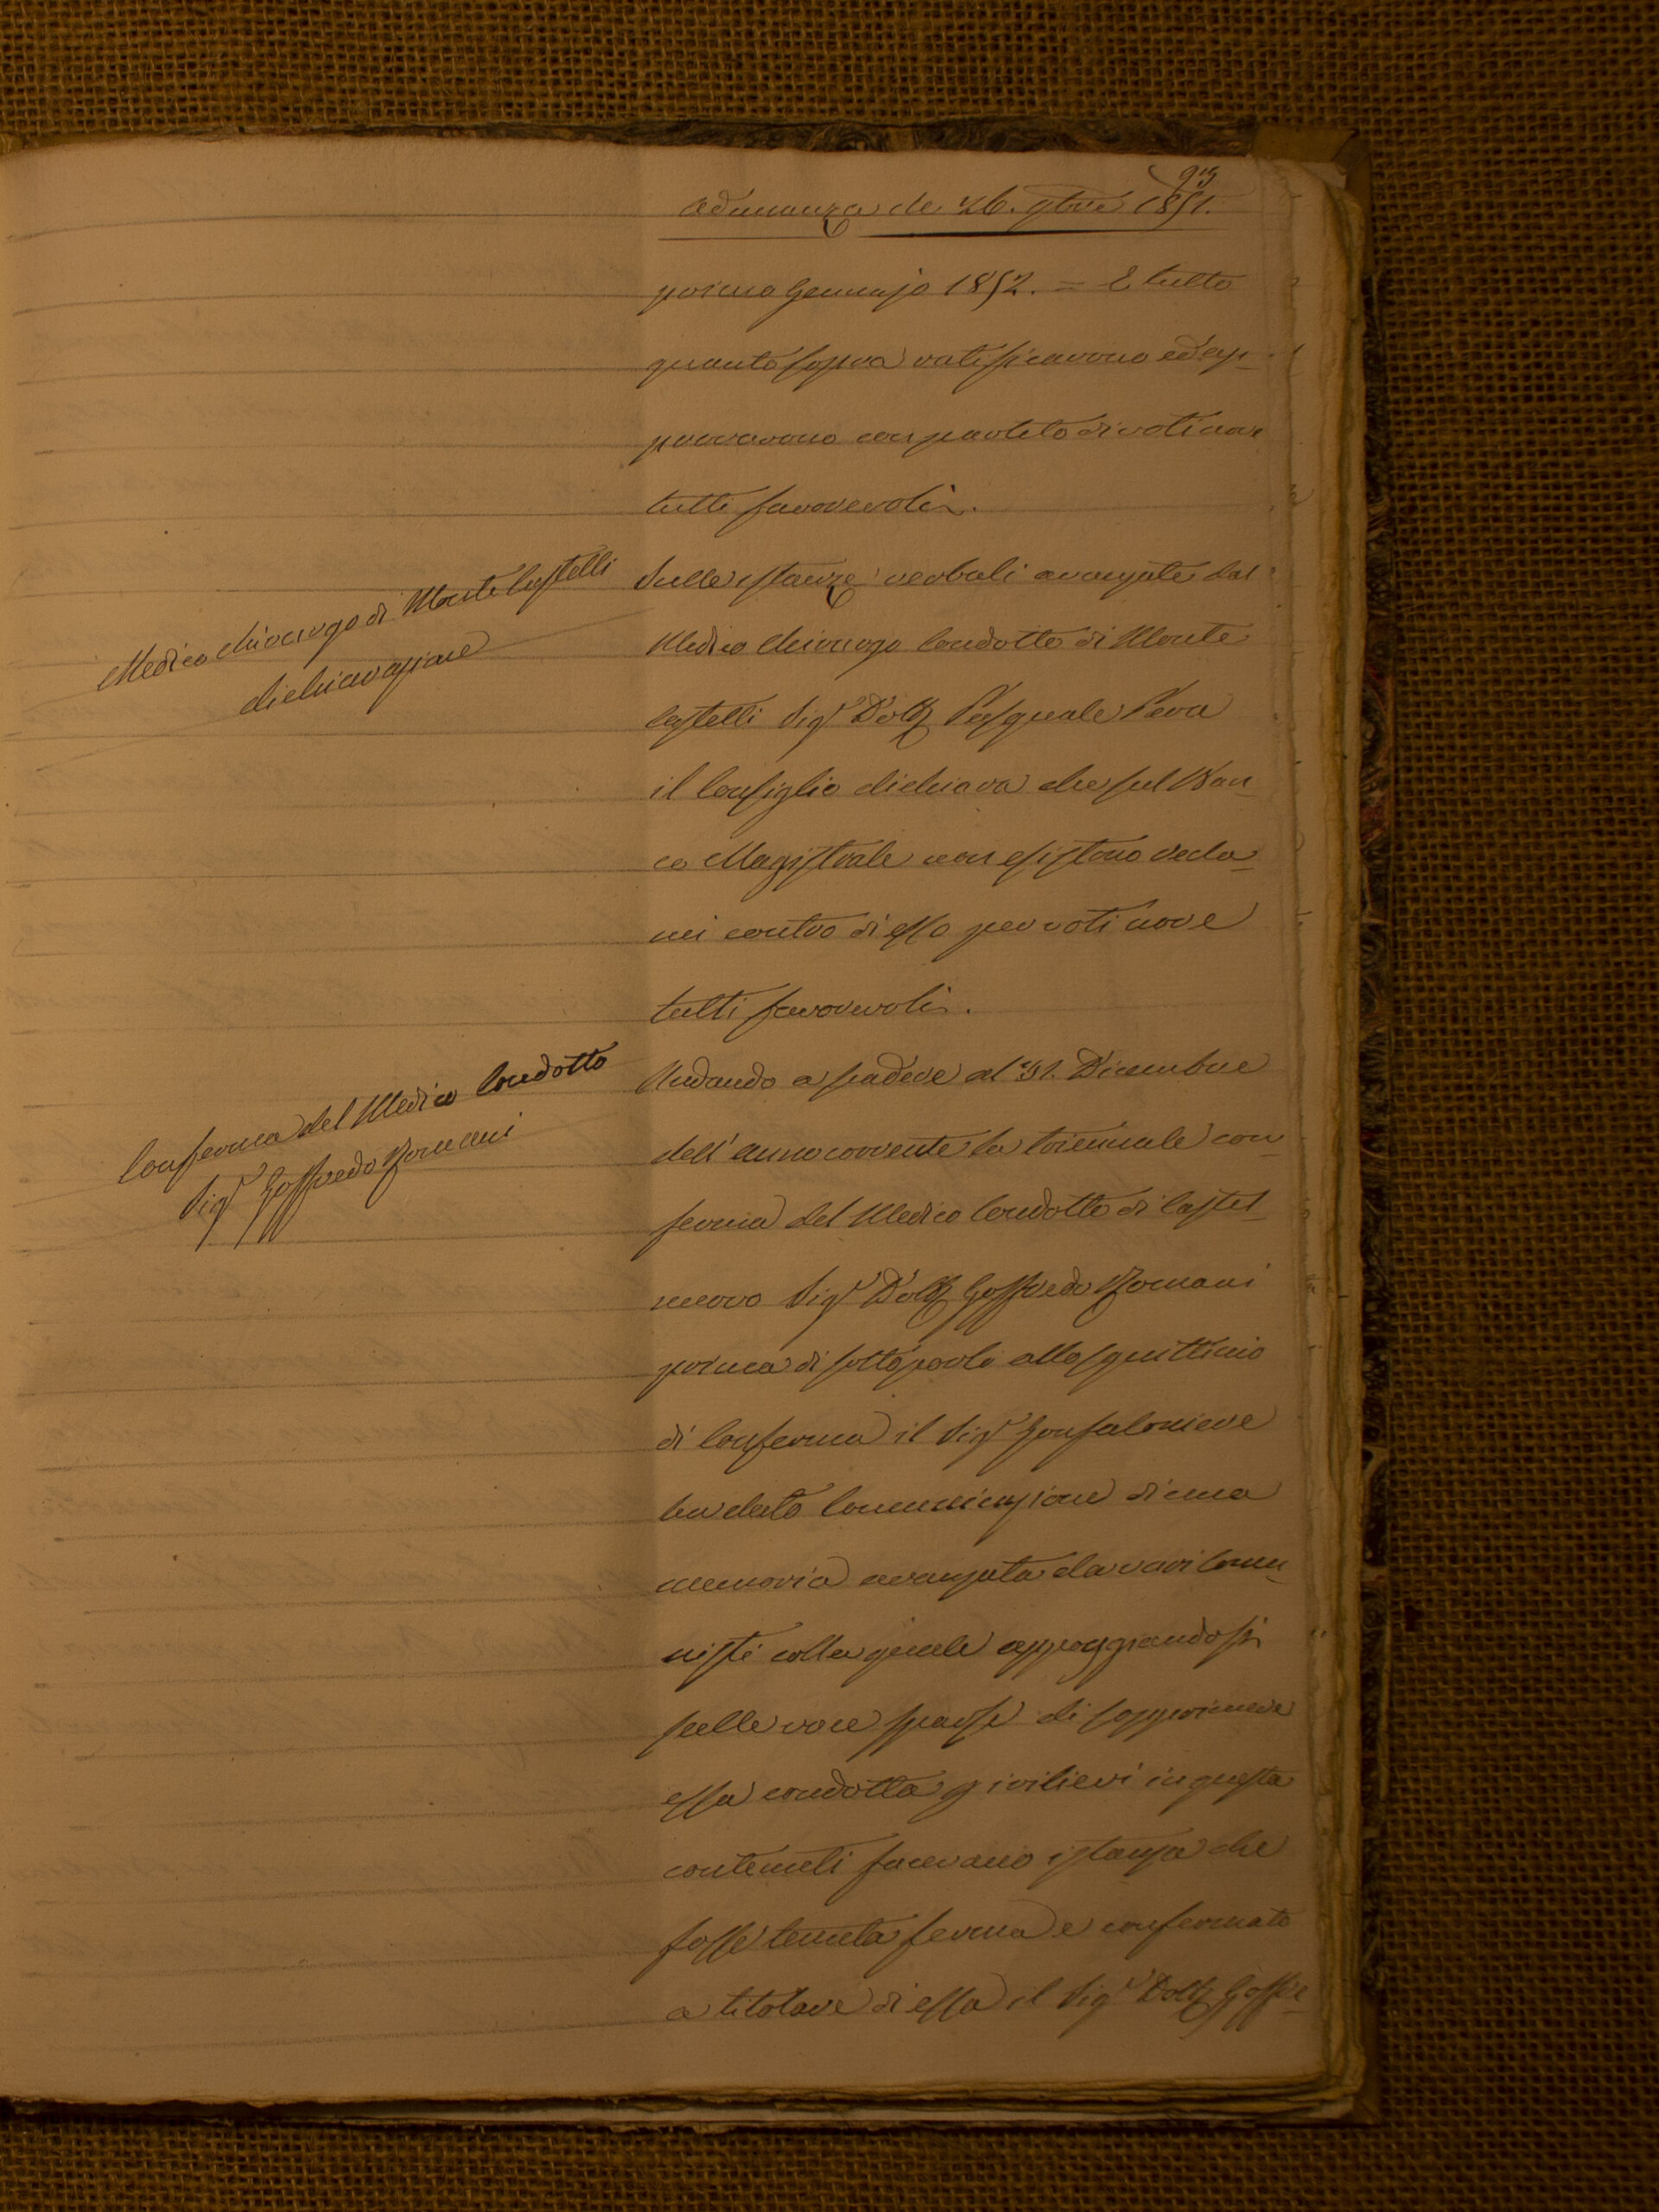 93
Adunanza de 26. 9bre 1851.
primo Gennajo 1852. = E tutto
quanto sopra ratificarono ed ap-
provarono con partito di voti nove
tutti favorevoli.
Medico Chirurgo di Monte Castelli
dichiarazione
Sulle istanze verbali avanzate dal
Medico Chirurgo Condotto di Monte
Castelli Sigr Dottr Pasquale
il Consiglio dichiara che sul Ban-
co Magistrale non esistono recla-
mi contro di esso per voti nove
tutti favorevoli.
Conferma del Medico Condotto
Sigr Goffredo Romani
Andando a scadere al 31. Dicembre
dell'anno corrente la triennale con-
ferma del Medico Condotto di Castel-
nuovo Sigr Dottr Goffredo Romani
prima di sottoporlo allo squittinio
di Conferma il Sigr Gonfaloniere
ha dato Comunicazione di una
memoria avanzata da vari Comu-
nisti colla quale appoggiandosi
sulle voce sparse di sopprimere
essa condotta, e i rilievi in questa
contenuti facevano istanza che
fosse tenuta ferma e confermato
a titolare di essa il Sigr Dottr Goffre-